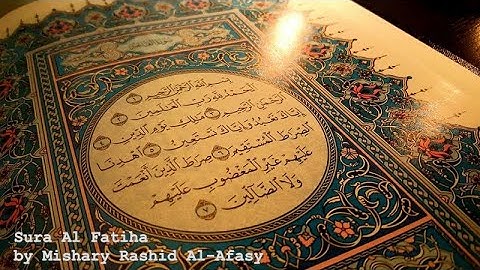 بِسْمِ اللَّهِ الرَّحْمَٰنِ الرَّحِيمِ ١
الْحَمْدُ لِلَّهِ رَبِّ الْعَالَمِينَ ٢
الرَّحْمَٰنِ الرَّحِيمِ ٣ مَالِكِ يَوْمِ الدِّينِ ٤
إِيَّاكَ نَعْبُدُ وَإِيَّاكَ نَسْتَعِينُ ٥ اهْدِنَا
الصِّرَاطَ الْمُسْتَقِيمَ ٦ صِرَاطَ الَّذِينَ أَنْعَمْتَ
عَلَيْهِمْ غَيْرِ الْمَغْضُوبِ عَلَيْهِمْ
وَلَا الضَّالِّينَ ٧
Sura Al Fatiha
by Mishary Rashid Al-Afasy